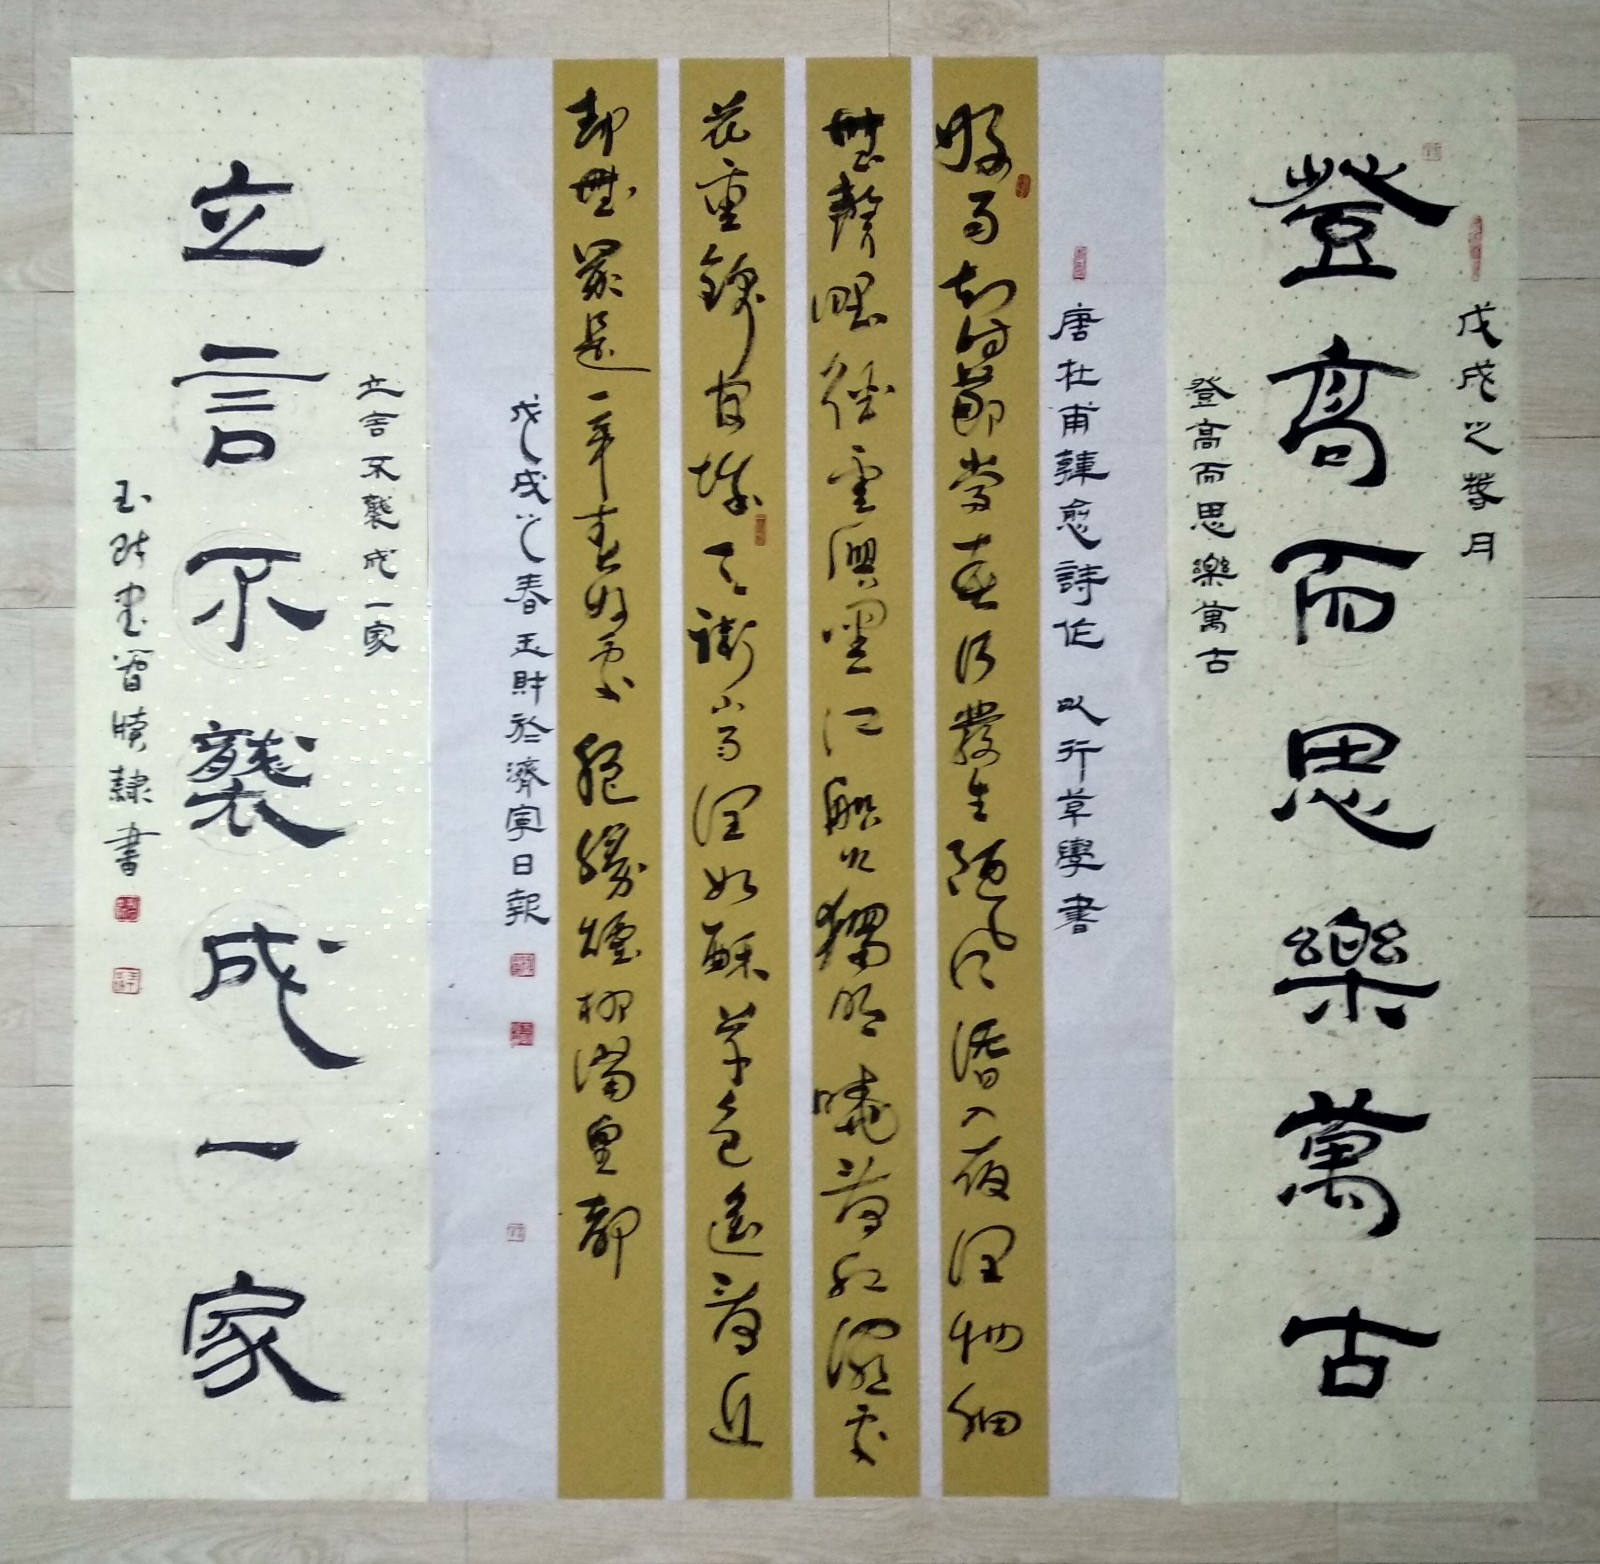 戊戌之春月
登高而思樂萬古
登高而思樂萬古
唐杜甫韓愈詩作 以行草學書
好雨知時節當春乃發生隨風潛入夜潤物細
無聲野徑雲俱黑江船火獨明曉看紅濕處
花重錦官城天街小雨潤如酥草色遙看近
却無最是一年春好處絕勝煙柳滿皇都
戊戌之春玉財於濟寧日報
立言不襲成一家
立言不襲成一家
玉財書 隸書